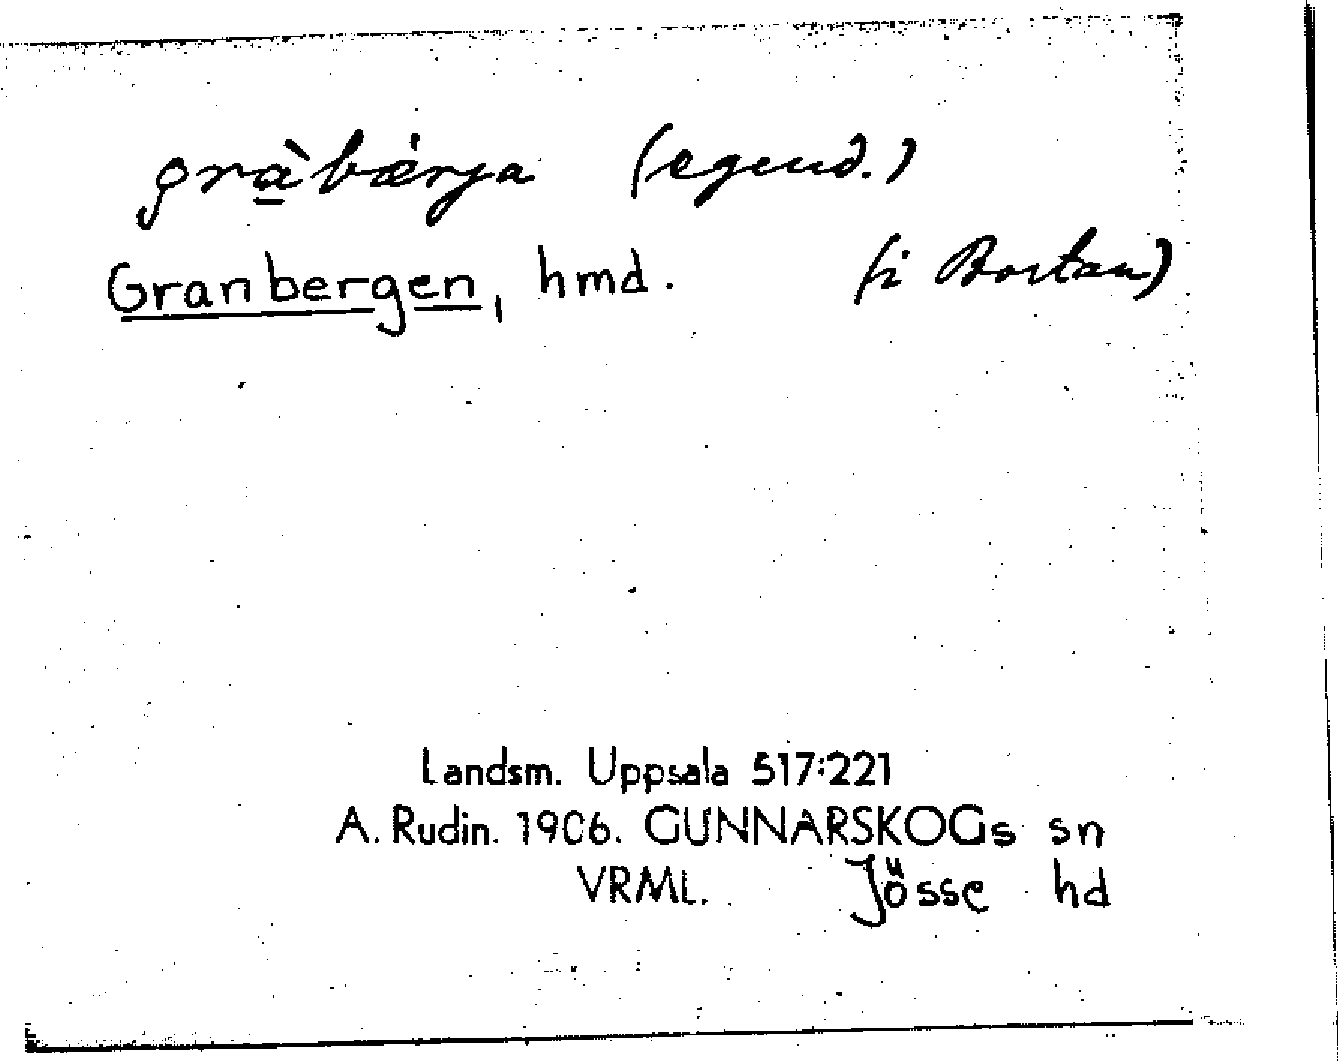 gràbǽrja (egend.)
Granbergen, hmd. (i Bortan)
Landsm. Uppsala 517:221
A. Rudin. 1906. GUNNARSKOGs sn
VRML. Jösse hd